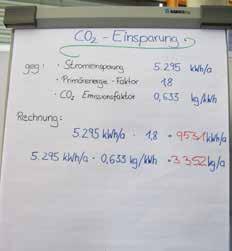 CO₂ - Einsparung
geg: · Stromeinsparung 5.295 kWh/a
· Primärenergie-Faktor 1,8
· CO₂ Emissionsfaktor 0,633 kg/kWh
Rechnung:
5.295 kWh/a · 1,8 = 9531 kWh/a
5.295 kWh/a · 0,633 kg/kWh = 3.352 kg/a